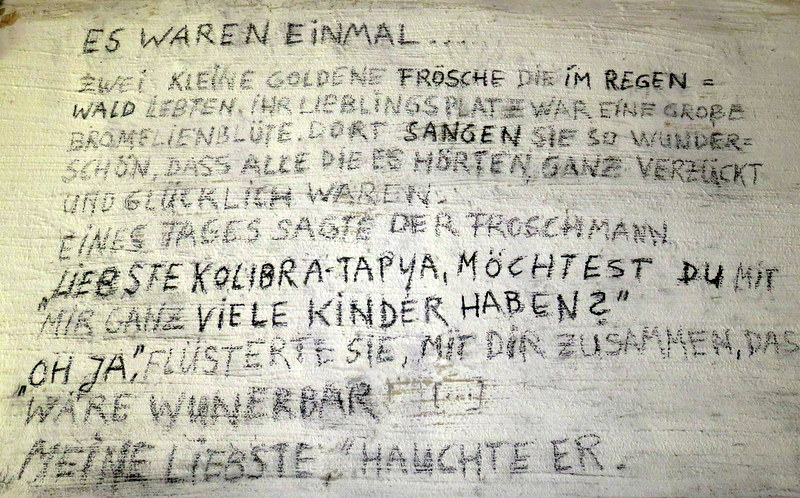 ES WAREN EINMAL....
ZWEI KLEINE GOLDENE FRÖSCHE DIE IM REGEN =
WALD LEBTEN. IHR LIEBLINGSPLATZ WAR EINE GROßE
BROMELIENBLÜTE. DORT SANGEN SIE SO WUNDER=
SCHÖN, DASS ALLE DIE ES HÖRTEN, GANZ VERZÜCKT
UND GLÜCKLICH WAREN.
EINES TAGES SAGTE DER FROSCHMANN
„LIEBSTE KOLIBRA-TAPYA, MÖCHTEST DU MIT
MIR GANZ VIELE KINDER HABEN?"
„OH JA," FLÜSTERTE SIE, MIT DIR ZUSAMMEN, DAS
WÄRE WUNERBAR [....]
MEINE LIEBSTE," HAUCHTE ER.